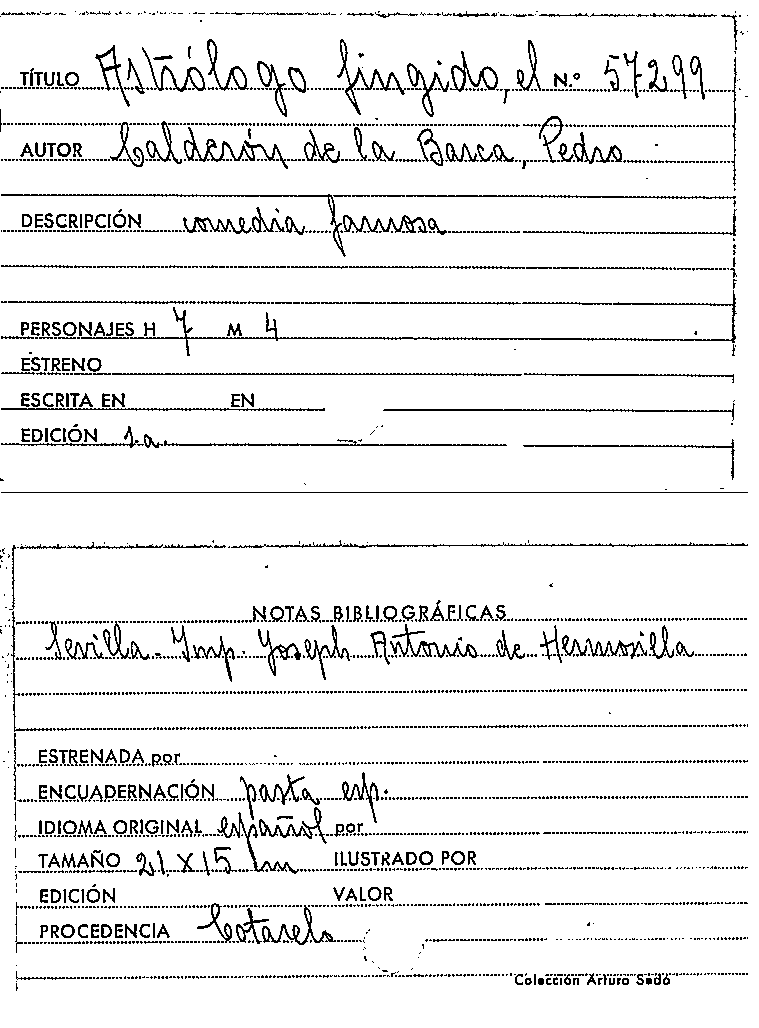 TÍTULO Astrólogo fingido, el N.º 57299
AUTOR Calderón de la Barca, Pedro
DESCRIPCIÓN comedia famosa
PERSONAJES H 7 M 4
ESTRENO
ESCRITA EN EN
EDICIÓN s.a.
NOTAS BIBLIOGRÁFICAS
Sevilla - Imp. Joseph Antonio de Hermosilla
ESTRENADA por
ENCUADERNACIÓN pasta esp.
IDIOMA ORIGINAL español por
TAMAÑO 21 X 15 cm ILUSTRADO POR
EDICIÓN VALOR
PROCEDENCIA Cotarelo
Colección Arturo Sedó